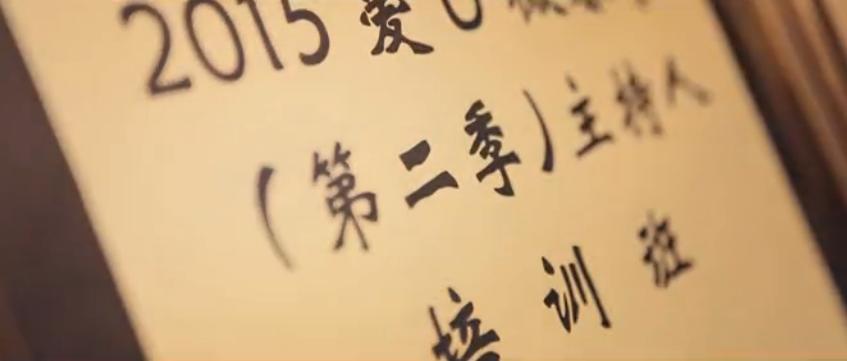 2015爱
(第二季)主持人
培训班